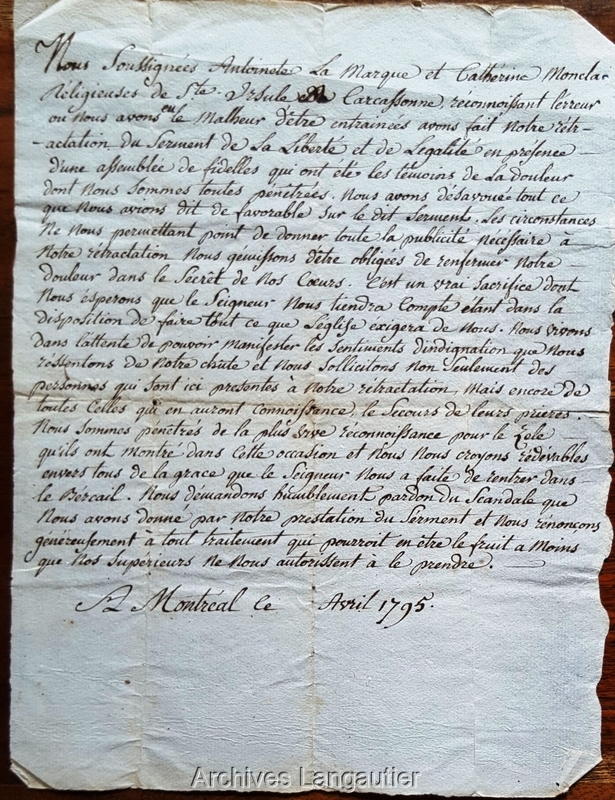 Nous Soussignées Antoinete La Marque et Cathérine Monclar
Réligieuses de Ste. Ursule de Carcassonne, réconnoissant l'erreur
ou Nous avons eu le Malheur d'être entrainées avons fait Notre rétr-
-actation du Serment de La Liberté et de Légalité en présence
d'une assemblée de fidelles qui ont été les témoins de La douleur
dont Nous Sommes toutes pénétrées. Nous avons désavoué tout ce
que Nous avions dit de favorable Sur le dit Serment. Les circonstances
Ne Nous permettant point de donner toute la publicité nécessaire à
Notre rétractation Nous gémissons d'être obligées de renfermer Notre
douleur dans le Secrét de Nos Cœurs. C'est un vrai Sacrifice dont
Nous ésperons que le Seigneur Nous tiendra Compte étant dans la
disposition de faire tout ce que L'église éxigera de Nous. Nous vivons
dans l'attente de pouvoir manifester les Sentiments d'indignation que Nous
réssentons de Notre chûte et Nous Sollicitons Non Seulement des
personnes qui Sont ici présentes à Notre rétractation, Mais encore de
toutes Celles qui en auront Connoissance, le Secours de leurs prières.
Nous Sommes pénétrés de la plus vive réconnoissance pour le Zéle
qu'ils ont Montré dans Cette occasion et Nous Nous croyons rédevables
envers tous de la grace que le Seigneur Nous a faite de rentrer dans
le Bercail. Nous démandons humblement pardon du Scandale que
Nous avons donné par Notre prestation du Serment et Nous rénonçons
généreusement à tout traitement qui pourroit en être le fruit a Moins
que Nos Supérieurs Ne Nous autorissent à le prendre.
A Montréal Ce Avril 1795.
Archives Langautier